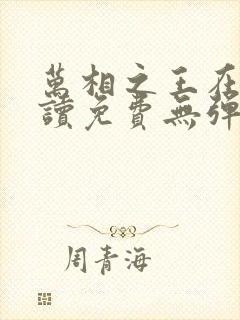 萬相之王在
讀免費無彈
周青海